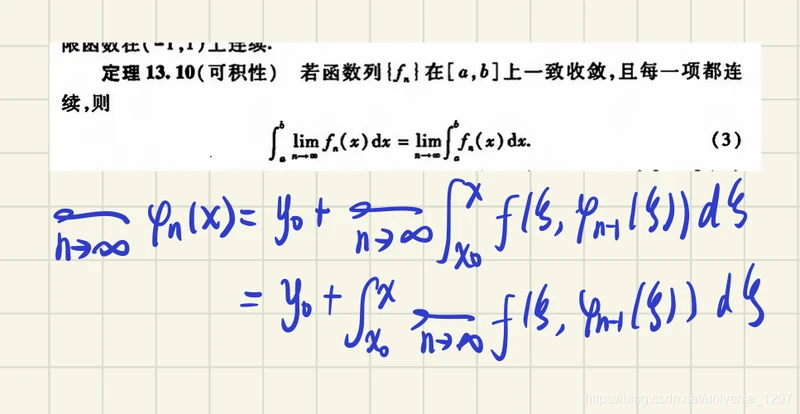 限函数在(-1,1)上连续.
定理13.10(可积性) 若函数列{fₙ}在[a,b]上一致收敛,且每一项都连
续,则
∫ₐᵇ lim_{n→∞} fₙ(x)dx = lim_{n→∞} ∫ₐᵇ fₙ(x)dx. (3)
lim_{n→∞} φₙ(x) = y₀ + lim_{n→∞} ∫_{x₀}^{x} f(ξ, φₙ₋₁(ξ)) dξ
= y₀ + ∫_{x₀}^{x} lim_{n→∞} f(ξ, φₙ₋₁(ξ)) dξ
https://blog.csdn.net/universe_1207